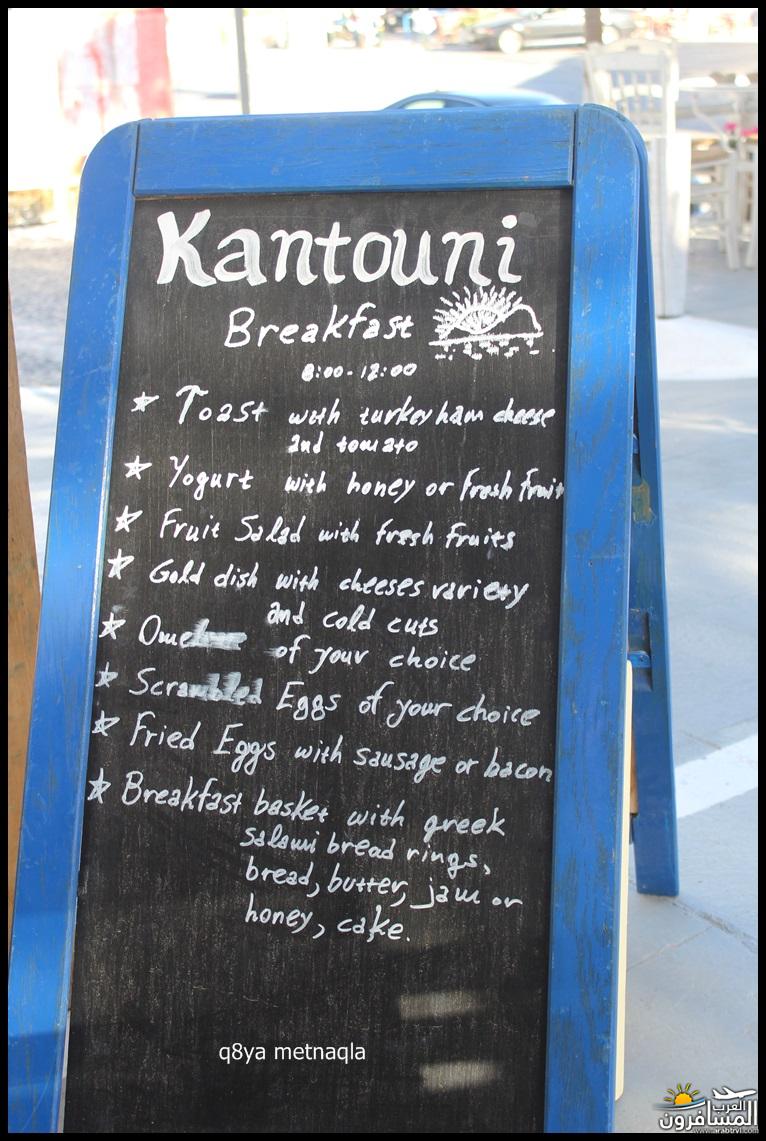 Kantouni
Breakfast
8:00-12:00
Toast with turkey ham cheese
and tomato
Yogurt with honey or fresh fruit
Fruit Salad with fresh fruits
Gold dish with cheeses variety
and cold cuts
of your choice
Scrambled Eggs of your choice
Fried Eggs with sausage or bacon
Breakfast basket with greek
salami bread rings,
bread, butter, jam or
honey, cake.
q8ya metnaqla
العرب
المسافرون
www.arabtrvl.com